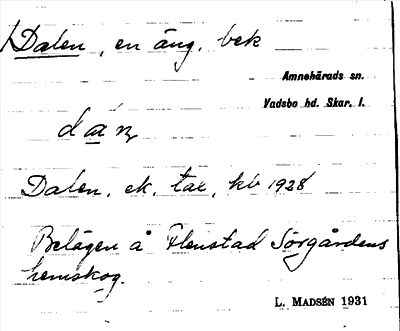 Dalen, en äng. bek
Amnehärads sn.
Vadsbo hd. Skar. l.
dan
Dalen. ek. tax, kv 1928
Belägen å Flenstad Sörgårdens
hemskog.
L. MADSÉN 1931